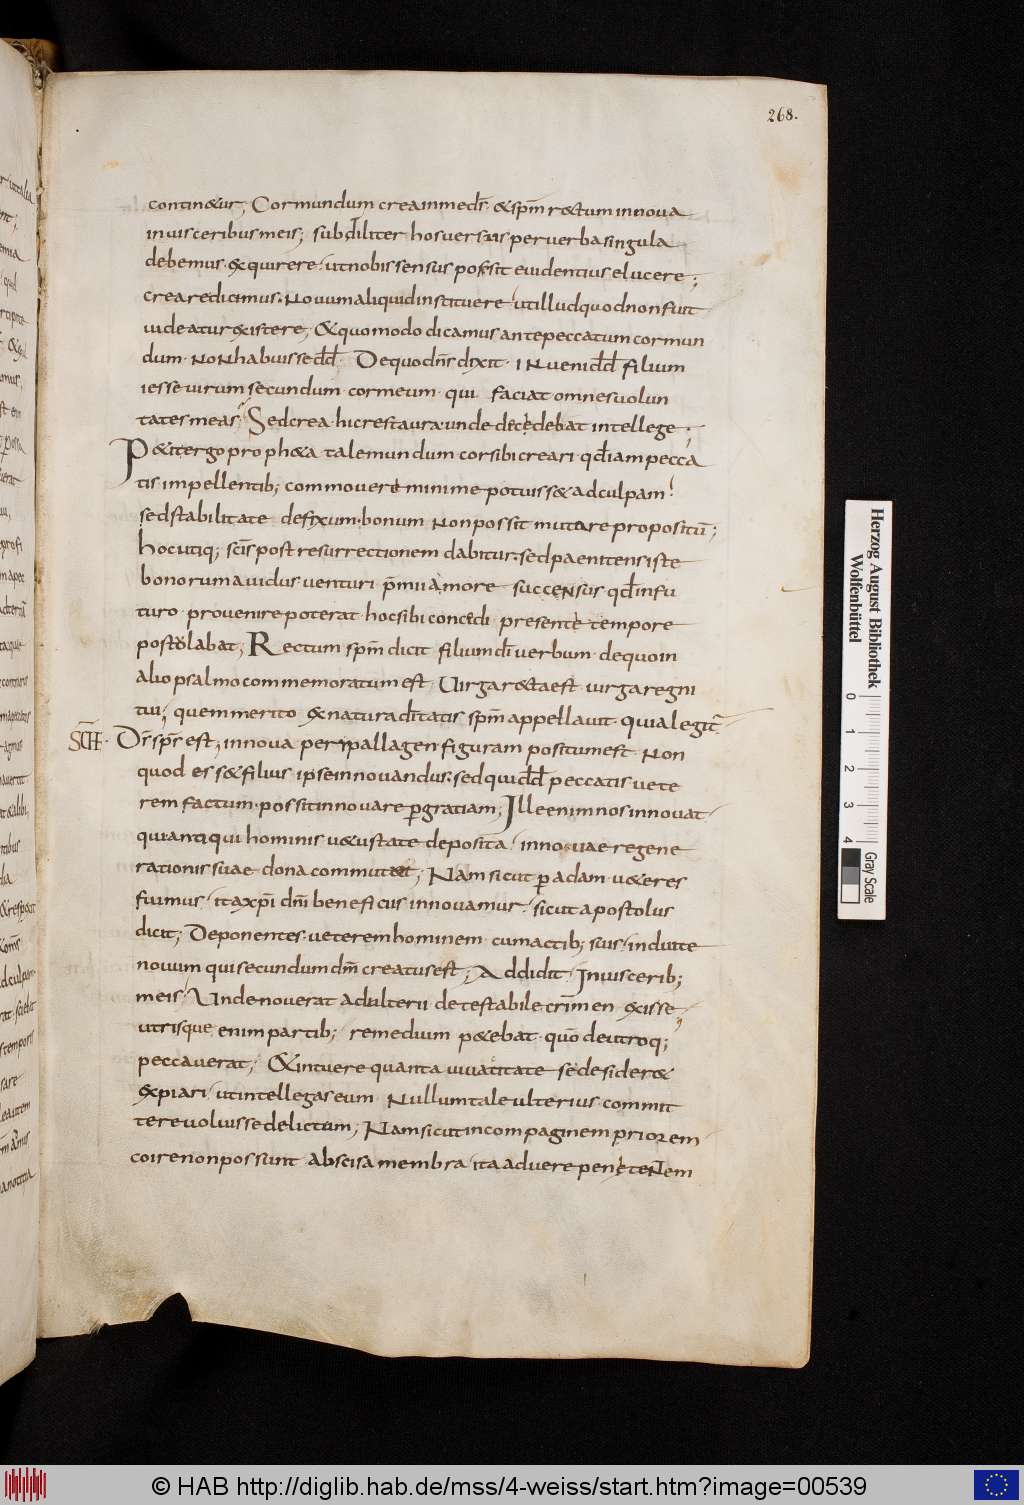 268.
contin&ur; Cor mundum crea in me d̄s · & sp̄m r&tum innova
in visceribus meis; subdiliter hos versus per verba singula
debemus exquirere · ut nobis sensus possit evidentius elucere;
creare dicimus · Novum aliquid instituere ut illud quod non fuit
videatur existere; & quomodo dicamus ante peccatum cor mun
dum · NoN habuisse dd̄ · De quo dn̄s dixit · INveni dd̄ filium
iesse virum secundum · cor meum · qui faciat omnes volun
tates meas; Sed crea · hic restaura · unde decedebat intellege ·
P&it ergo proph&a tale mundum cor sibi creari · qd̄ iam pecca
tis impellentib; commovere minime potuiss& ad culpam ·
sed stabilitate defixum · bonum Non possit mutare propositū;
hoc utiq; sc̄is post resurrectionem dabitur · sed paenitens iste
bonorum avidus venturi p̄mii amore succeNsus qd̄ in fu
turo · provenire poterat · hoc sibi concedi · presente tempore
postolabat; Rectum sp̄m dicit filium dī verbum · de quo in
alio psalmo commemoratum est · Virga r&ta est · virga regni
tui; quem merito & natura dīitatis sp̄m appellavit · quia legit̄
SCH · Ds̄ sp̄s est; innova per ypallagen figuram positum est · Non
quod ess& filius ipse innovandus · sed qui dd̄ peccatis vete
rem factum · possit innovare p gratiam; Ille enim nos innovat ·
qui antiqui hominis v&ustate deposita · in novae regene
rationis suae dona commutat; Nam sicut p adam v&eres
fuimus · ita xp̄i dn̄i beneficiis innovamur · sicut apostolus
dicit; Deponentes · veterem hominem · cum actib; suis · induite
novum qui secundum dm̄ creatus est; Addidit · In viscerib;
meis · Unde noverat adulterii detestabile crimen exisse
utrisque enim partib; remedium p&ebat · quō de utroq;
peccaverat; & intuere quanta vivacitate se desider&
expiari · ut intellegas eum · Nullum tale ulterius · commit
tere voluisse delictum; Nam sicut in compaginem priorem
coire non possunt · abscisa membra · ita advere peniteNtem
Herzog August Bibliothek
Wolfenbüttel
0 1 2 3 4
Gray Scale
© HAB http://diglib.hab.de/mss/4-weiss/start.htm?image=00539